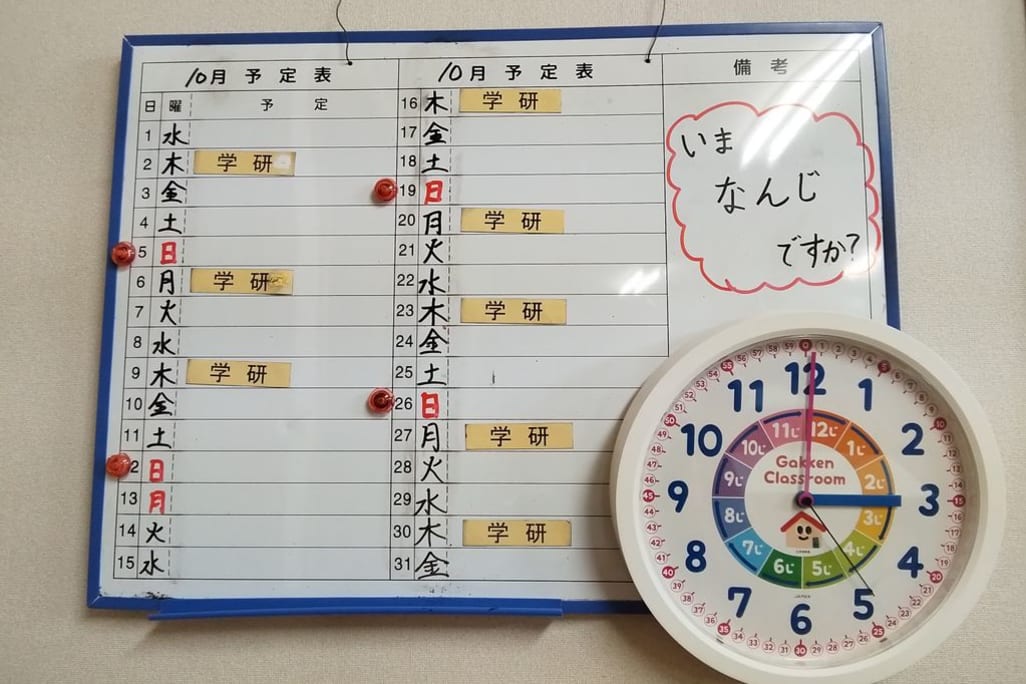 10月 予定表
日 曜 予 定
1 水
2 木 学研
3 金
4 土
5 日
6 月 学研
7 火
8 水
9 木 学研
10 金
11 土
2 日
13 月
14 火
15 水
10月 予定表
16 木 学研
17 金
18 土
19 日
20 月 学研
21 火
22 水
23 木 学研
24 金
25 土
26 日
27 月 学研
28 火
29 水
30 木 学研
31 金
備考
いま
なんじ
ですか?
12
1
2
3
4
5
6
7
8
9
10
11
12じ
1じ
2じ
3じ
4じ
5じ
6じ
7じ
8じ
9じ
10じ
11じ
Gakken
Classroom